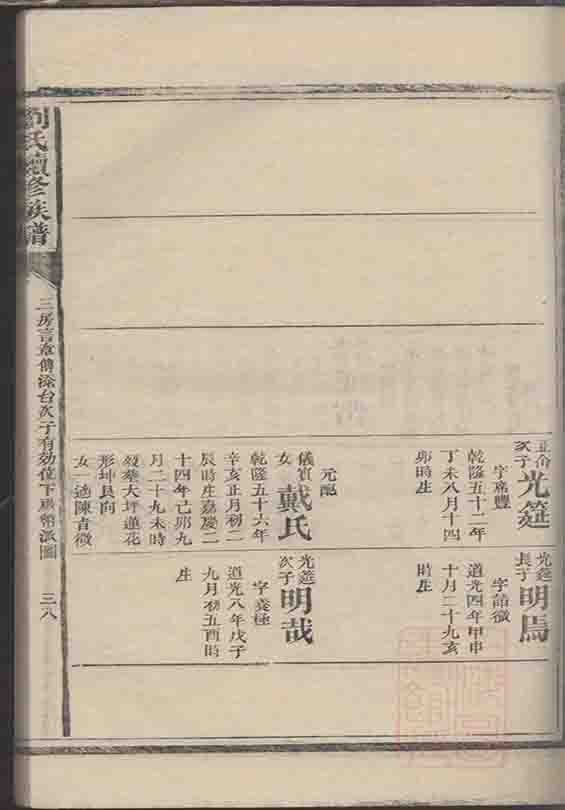 劉氏續修族譜
三房言章傳
台次子有効位下
派圖
三八
次子
光筵
字席豐
乾隆五十二年
丁未八月十四
卯時生
元配
儀賓
女
戴氏
乾隆五十六年
辛亥正月初二
辰時生嘉慶二
十四年己卯九
月二十九未時
殁葬大坪蓮花
形坤艮向
女一適陳青徵
光筵
長子
明焉
字誥徵
道光四年甲申
十月二十九亥
時生
光筵
次子
明哉
字養極
道光八年戊子
九月初五酉時
生